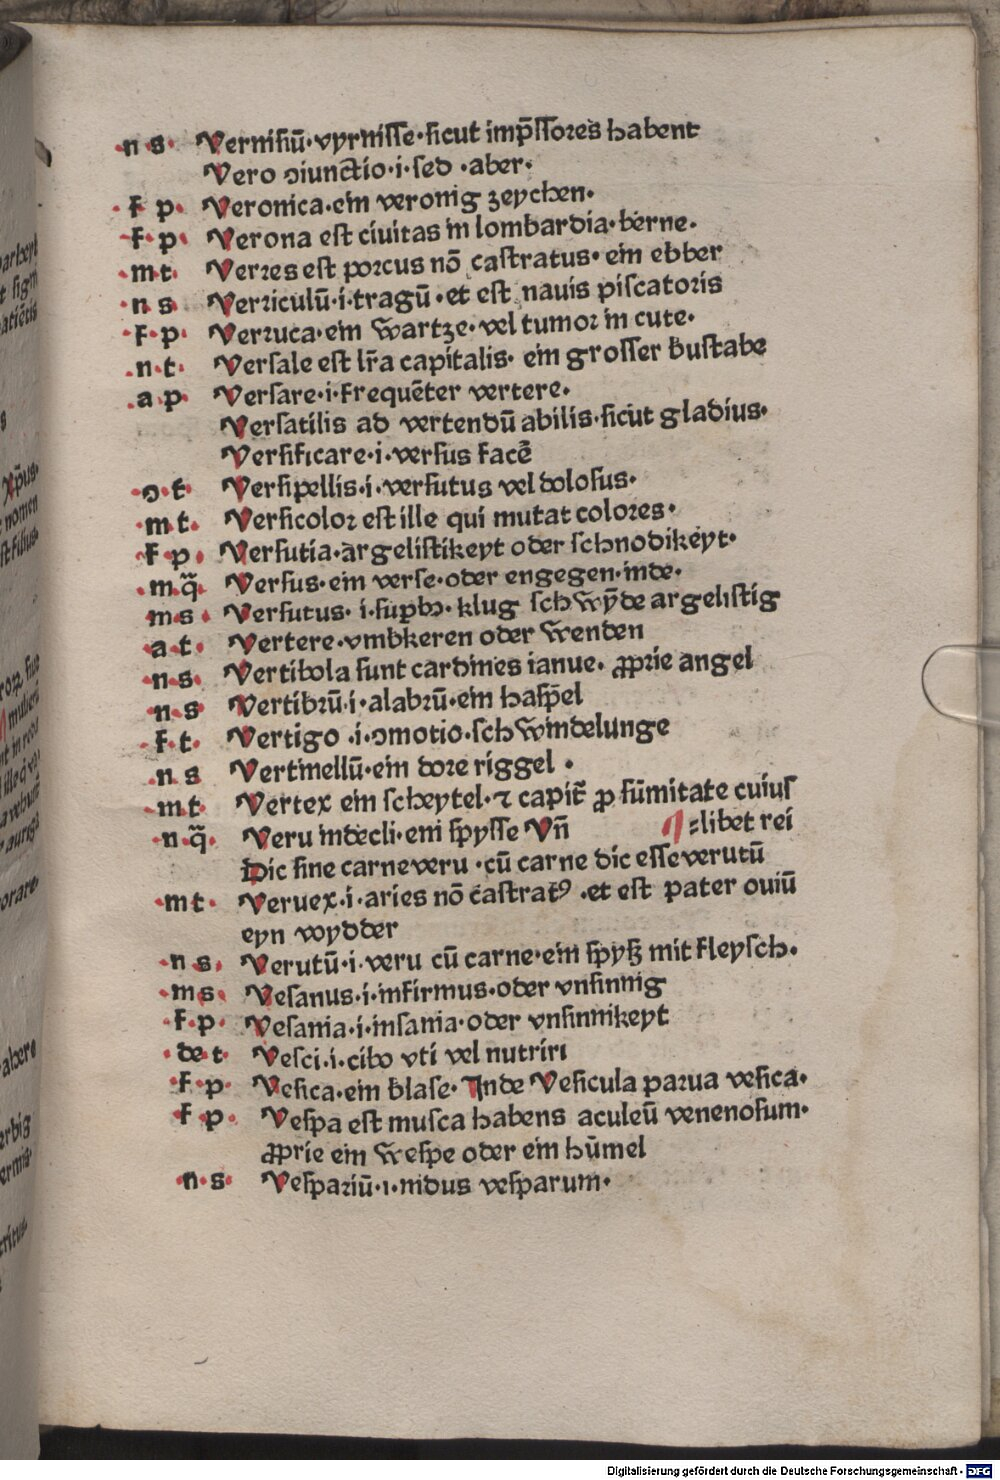 ·n s· Vernisiū·vyrnisse·sicut imp̄ssores habent
Vero ↄiunctio·i·sed ·aber·
·f p· Veronica·ein veronig zeychen·
·f·p· Verona est ciuitas in lombardia·berne·
·m t· Verres est porcus nō castratus· ein ebber
·n s· Verriculū·i·tragū·et est nauis piscatoris
·f·p· Verruca·ein wartze·vel tumor in cute·
·n·t· Versale est lr̄a capitalis· ein grosser bůstabe
·a p· Versare·i·frequēter vertere·
Versatilis ad vertendū abilis·sicut gladius·
Versificare·i·versus facē
·ↄ·t· Versipellis·i·versutus vel dolosus·
·m t· Versicolor est ille qui mutat colores·
·f p· Versutia·argelistikeyt oder schnodikeyt·
·m·q̄· Versus·ein verse·oder engegen·inde·
m s· Versutus· i·supbꝰ· klug schwȳde argelistig
·a t· Vertere·vmbkeren oder wenden
·n s· Vertibola sunt cardines ianue· ꝓprie angel
·n s· Vertibrū·i·alabrū·ein hasp̄el
·f·t· Vertigo ·i·ↄmotio·schwindelunge
·n s Vertinellū·ein dore riggel ·
·m t· Vertex ein scheytel·⁊ capit̄ ꝓ sūmitate cuius
·n·q̄· Veru indecli·ein spysse Vn̄ ¶ ⸗libet rei
Dic sine carne veru ·cū carne dic esse verutū
·m t· Veruex·i·aries nō castratꝰ ·et est pater ouiū
eyn wydder
·n s· Verutū·i·veru cū carne·ein spyß mit fleysch·
·m s· Vesanus·i·infirmus·oder vnsinnig
·f·p· Vesania·i·insania·oder vnsinnikeyt
·de t· Vesci·i·cibo vti vel nutriri
·f p· Vesica·ein blase· Inde Vesicula parua vesica·
·f p· Vespa est musca habens aculeū venenosum·
ꝓprie ein wespe oder ein hūmel
·n·s· Vespariū·i·nidus vesparum·
Digitalisierung gefördert durch die Deutsche Forschungsgemeinschaft - DFG